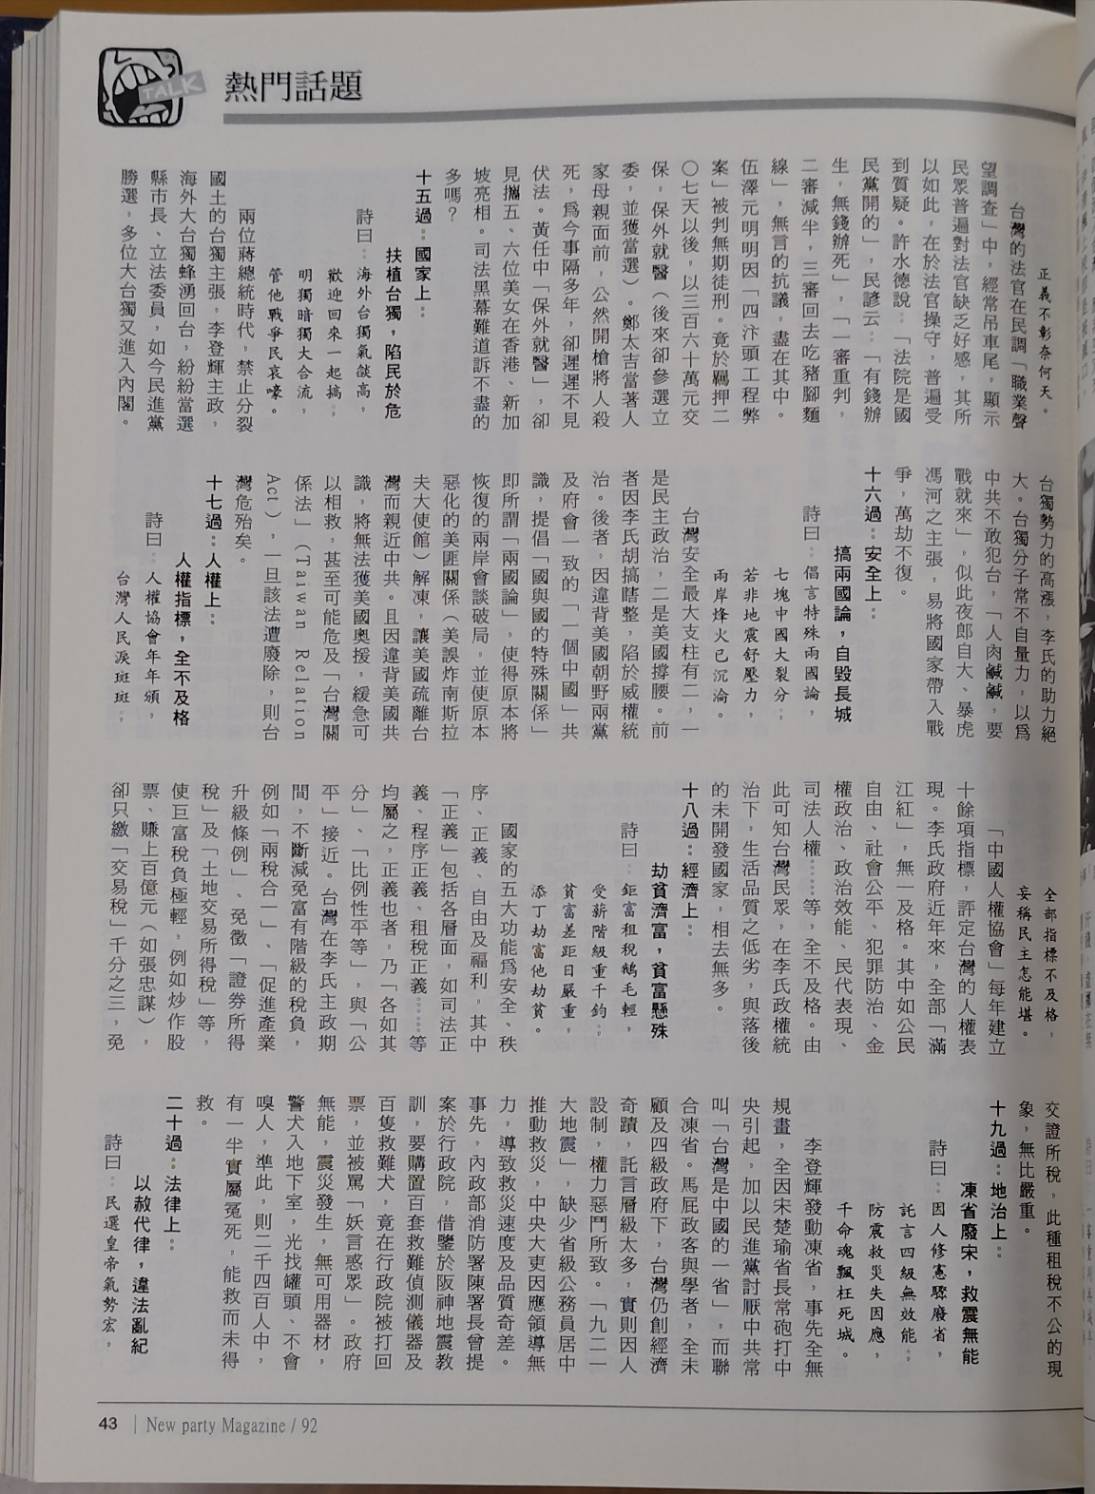 TALK
熱門話題
正義不彰奈何天。
台灣的法官在民調「職業聲
望調查」中，經常吊車尾，顯示
民眾普遍對法官缺乏好感，其所
以如此，在於法官操守，普遍受
到質疑。許水德說：「法院是國
民黨開的」，民諺云：「有錢辦
生，無錢辦死」，「一審重判，
二審減半，三審回去吃豬腳麵
線」，無言的抗議，盡在其中。
伍澤元明明因「四汴頭工程弊
案」被判無期徒刑。竟於羈押二
○七天以後，以三百六十萬元交
保，保外就醫（後來卻參選立
委，並獲當選）。鄭太吉當著人
家母親面前，公然開槍將人殺
死，為今事隔多年，卻遲遲不見
伏法。黃任中「保外就醫」，卻
見攜五、六位美女在香港、新加
坡亮相。司法黑幕難道訴不盡的
多嗎？
十五過：國家上：
扶植台獨，陷民於危
詩曰：海外台獨氣燄高，
歡迎回來一起搞；
明獨暗獨大合流，
管他戰爭民哀嚎。
兩位蔣總統時代，禁止分裂
國土的台獨主張，李登輝主政，
海外大台獨蜂湧回台，紛紛當選
縣市長、立法委員，如今民進黨
勝選，多位大台獨又進入內閣。
台獨勢力的高漲，李氏的助力絕
大。台獨分子常不自量力，以為
中共不敢犯台，「人肉鹹鹹，要
戰就來」，似此夜郎自大、暴虎
馮河之主張，易將國家帶入戰
爭，萬劫不復。
十六過：安全上：
搞兩國論，自毀長城
詩曰：倡言特殊兩國論，
七塊中國大裂分；
若非地震舒壓力，
兩岸烽火已沉淪。
台灣安全最大支柱有二，一
是民主政治，二是美國撐腰。前
者因李氏胡搞瞎整，陷於威權統
治。後者，因違背美國朝野兩黨
及府會一致的「一個中國」共
識，提倡「國與國的特殊關係」
即所謂「兩國論」，使得原本將
恢復的兩岸會談破局。並使原本
惡化的美匪關係（美誤炸南斯拉
夫大使館）解凍，讓美國疏離台
灣而親近中共。且因違背美國共
識，將無法獲美國奧援，緩急可
以相救，甚至可能危及「台灣關
係法」（Taiwan Relation
Act），一旦該法遭廢除，則台
灣危殆矣。
十七過：人權上：
人權指標，全不及格
詩曰：人權協會年年頒，
台灣人民淚斑斑；
全部指標不及格，
妄稱民主怎能堪。
「中國人權協會」每年建立
十餘項指標，評定台灣的人權表
現。李氏政府近年來，全部「滿
江紅」，無一及格。其中如公民
自由、社會公平、犯罪防治、金
權政治、政治效能、民代表現、
司法人權……等，全不及格。由
此可知台灣民眾，在李氏政權統
治下，生活品質之低劣，與落後
的未開發國家，相去無多。
十八過：經濟上：
劫貧濟富，貧富懸殊
詩曰：鉅富租稅鵝毛輕，
受薪階級重千鈞；
貧富差距日嚴重，
添丁劫富他劫貧。
國家的五大功能為安全、秩
序、正義、自由及福利，其中
「正義」包括各層面，如司法正
義、程序正義、租稅正義……等
均屬之，正義也者，乃「各如其
分」、「比例性平等」，與「公
平」接近。台灣在李氏主政期
間，不斷減免富有階級的稅負，
例如「兩稅合一」、「促進產業
升級條例」、免徵「證券所得
稅」及「土地交易所得稅」等，
使巨富稅負極輕，例如炒作股
票、賺上百億元（如張忠謀），
卻只繳「交易稅」千分之三，免
交證所稅，此種租稅不公的現
象，無比嚴重。
十九過：地治上：
凍省廢宋，救震無能
詩曰：因人修憲驟廢省，
託言四級無效能；
防震救災失因應，
千命魂飄枉死城。
李登輝發動凍省，事先全無
規畫，全因宋楚瑜省長常砲打中
央引起，加以民進黨討厭中共常
叫「台灣是中國的一省」，而聯
合凍省。馬屁政客與學者，全未
顧及四級政府下，台灣仍創經濟
奇蹟，託言層級太多，實則因人
設制，權力惡鬥所致。「九二一
大地震」，缺少省級公務員居中
推動救災，中央大吏因應領導無
力，導致救災速度及品質奇差。
事先，內政部消防署陳署長曾提
案於行政院，借鑒於阪神地震教
訓，要購置百套救難偵測儀器及
百隻救難犬，竟在行政院被打回
票，並被罵「妖言惑眾」。政府
無能，震災發生，無可用器材，
警犬入地下室，光找罐頭、不會
嗅人，準此，則二千四百人中，
有一半實屬冤死，能救而未得
救。
二十過：法律上：
以赦代律，違法亂紀
詩曰：民選皇帝氣勢宏，
43 | New party Magazine / 92